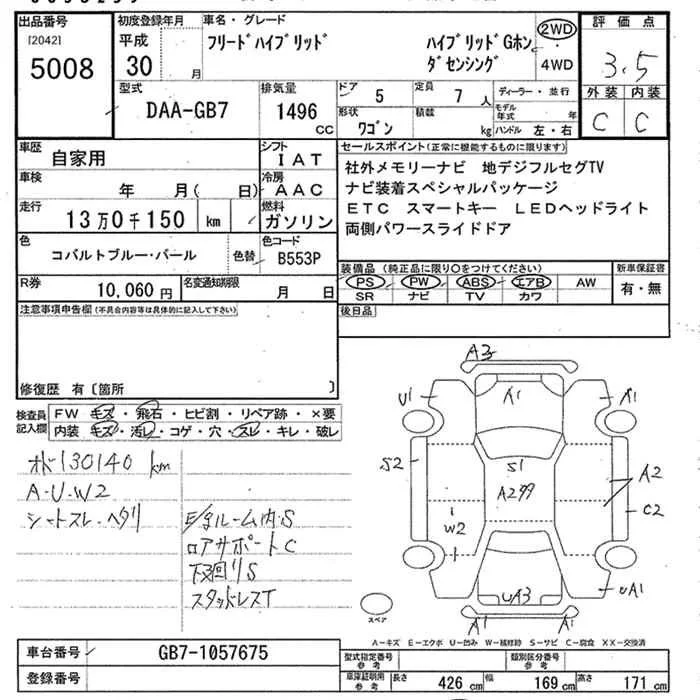 出品番号
[2042]
5008
初度登録年月
平成
30 月
車名・グレード
フリードハイブリッド ハイブリッドGホン
ダセンシング
2WD
4WD
評価点
3.5
外装 内装
C C
型式
DAA-GB7
排気量
1496 CC
ドア 5
定員 7 人
形状
ワゴン
積載 kg
ディーラー・並行
モデル年式 年
ハンドル 左・右
車歴 自家用
シフト
IAT
車検 年 月( 日)
冷房
AAC
走行 13万0千150 km
燃料
ガソリン
色 コバルトブルー・パール 色替
色コード
B553P
R券 10,060円
名変通知期限 月 日
セールスポイント(正常に機能するものに限ります)
社外メモリーナビ 地デジフルセグTV
ナビ装着スペシャルパッケージ
ETC スマートキー LEDヘッドライト
両側パワースライドドア
装備品(純正品に限り〇をつけてください)
PS PW ABS エアB AW
SR ナビ TV カワ
新車保証書
有・無
後日品
注意事項申告欄(不具合内容等は具体的に記入して下さい)
修復歴 有〔箇所 〕
検査員記入欄
FW キズ・飛石・ヒビ割・リペア跡・×要
内装 キズ・汚レ・コゲ・穴・スレ・キレ・破レ
130140 km
A・U・W2
シートスレ・ヘタリ
ルーム内・S
ロアサポートC
下回りS
スタッドレスT
A3
U1
A1
A1
S2
S1
A2
C2
W2
UA3
UA1
A1
A1
スペア
A-キズ E-エクボ U-凹み W-補修跡 S-サビ C-腐食 XX-交換済
車台番号 GB7-1057675
登録番号
型式指定番号
参考
類別区分番号
参考
車庫証明用
参考
長さ 426 cm 幅 169 cm 高さ 171 cm